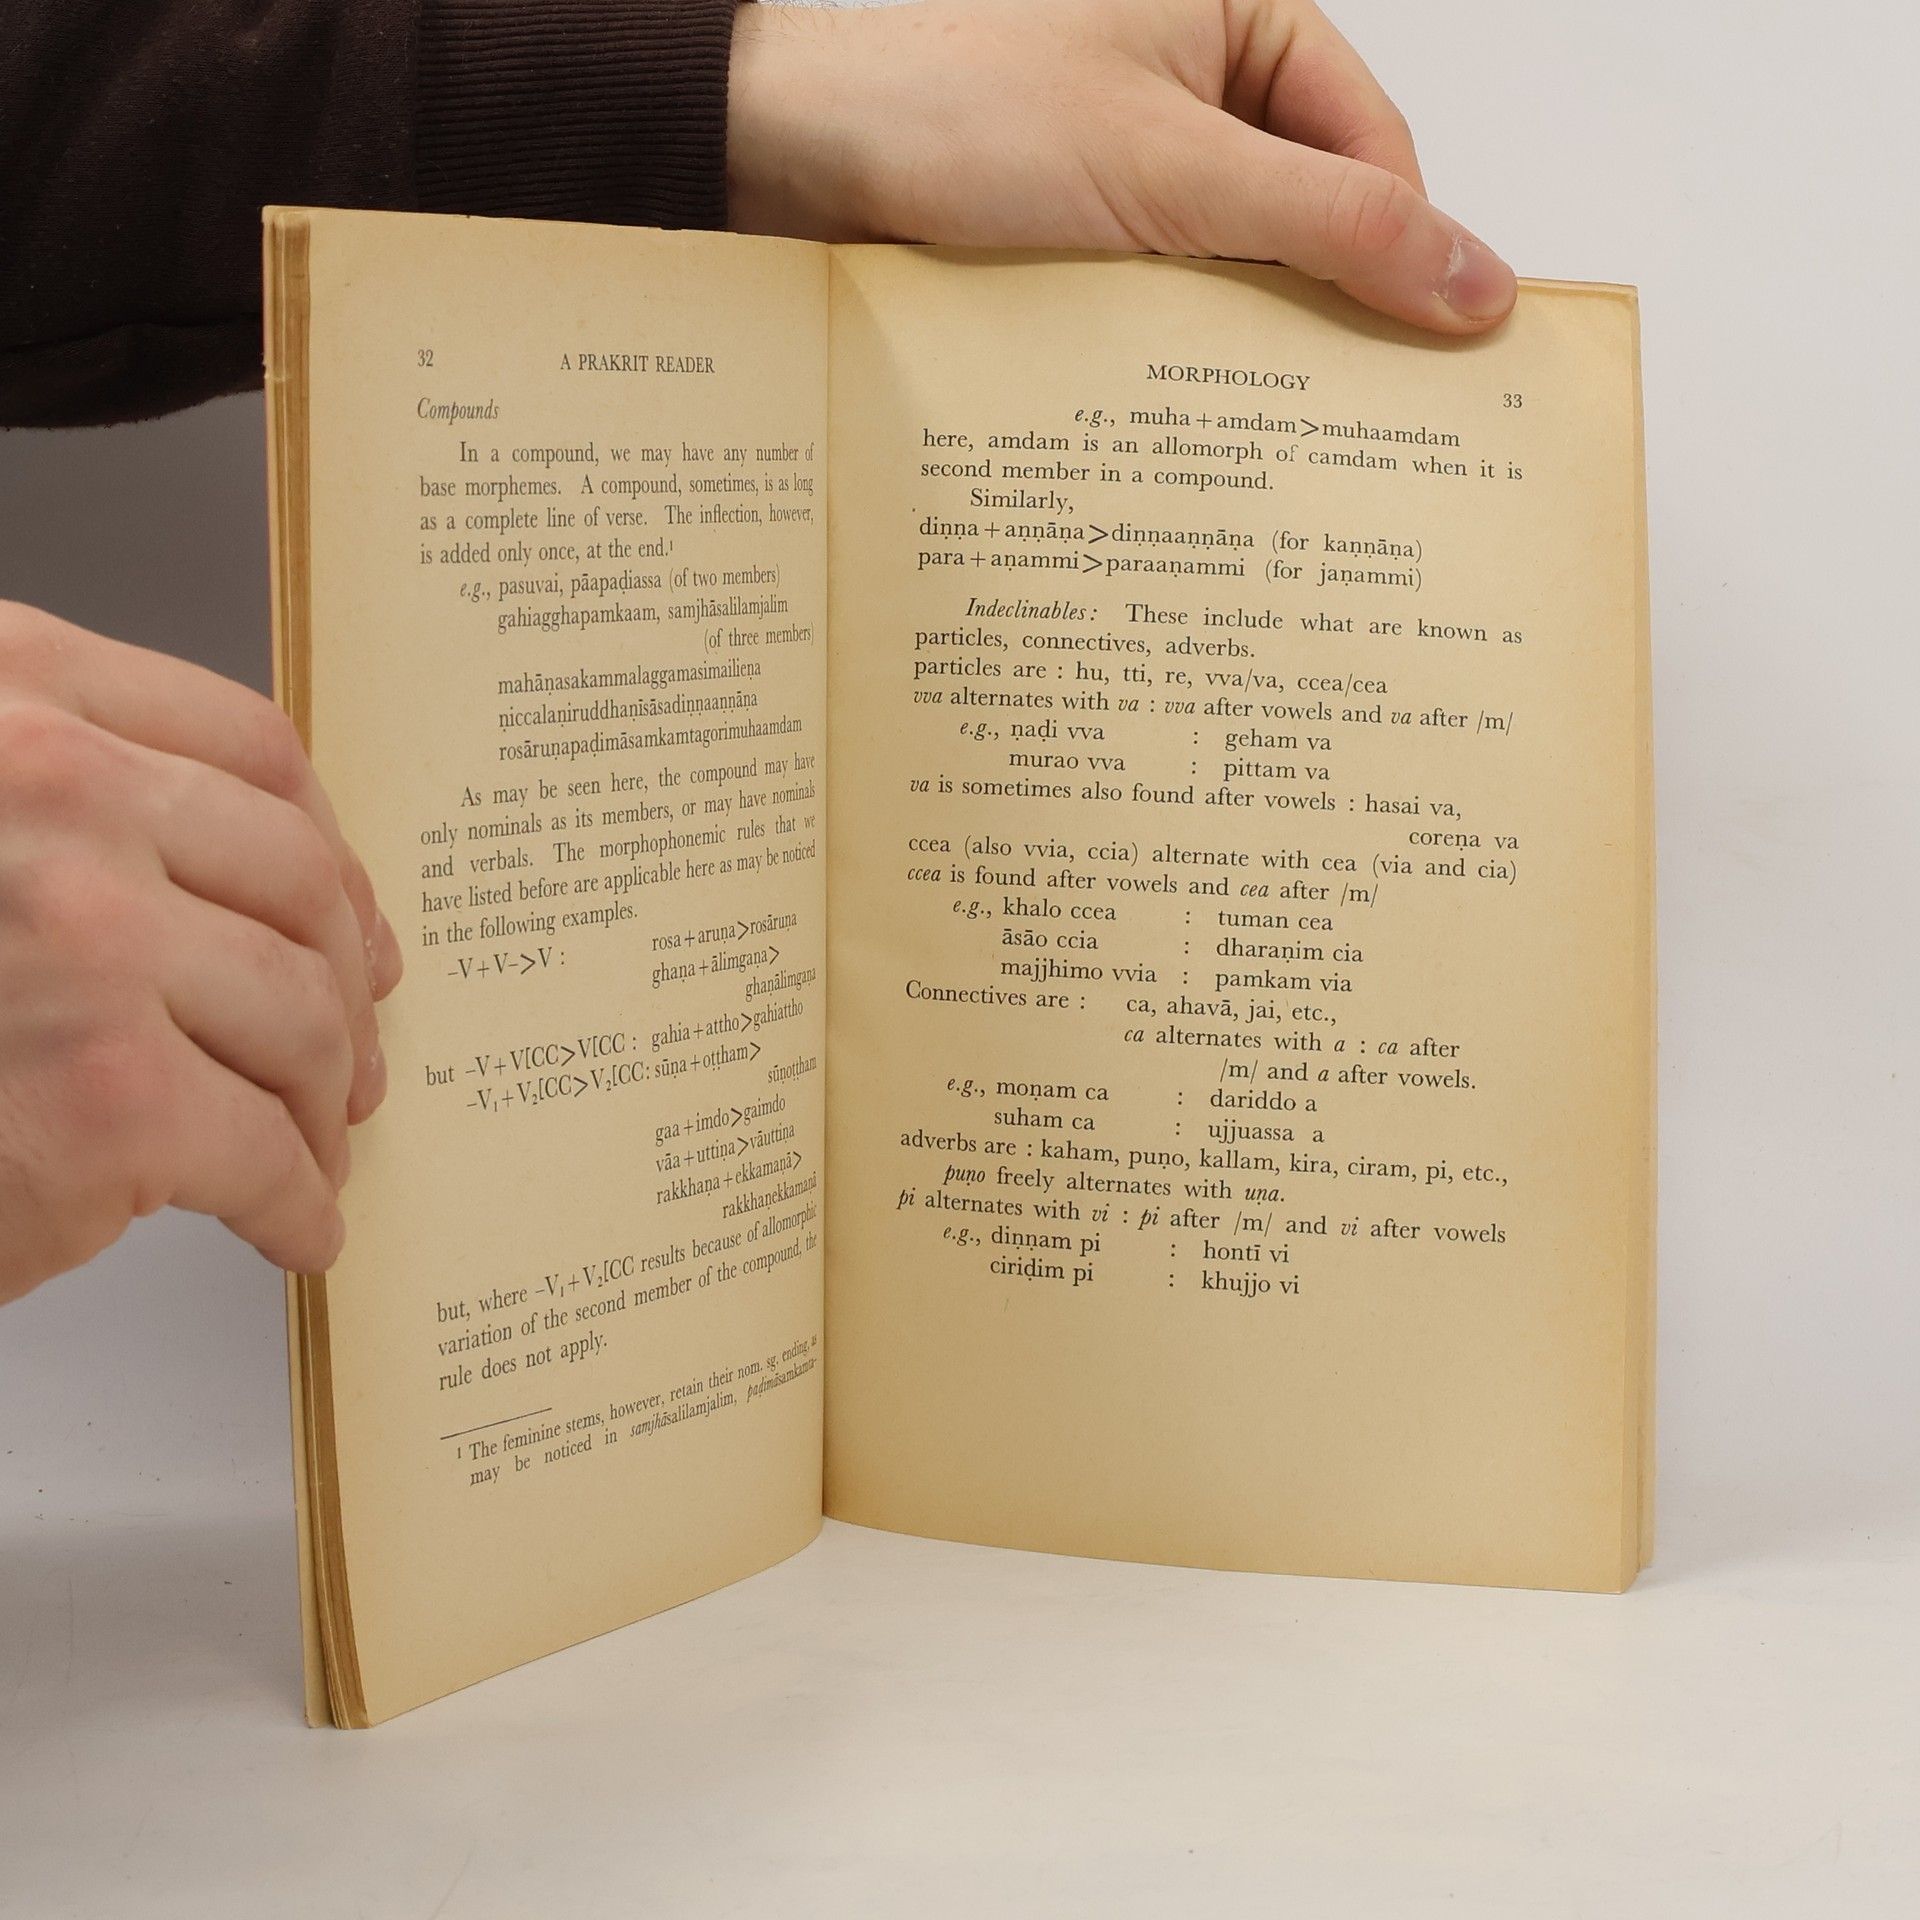 32
A PRAKRIT READER
Compounds
In a compound, we may have any number of
base morphemes. A compound, sometimes, is as long
as a complete line of verse. The inflection, however,
is added only once, at the end.¹
e.g., pasuvai, pāapaḍiassa (of two members)
gahiagghapamkaam, samjhāsalilamjalim
(of three members)
mahāṇasakammalaggamasimailieṇa
ṇiccalaṇiruddhaṇīsāsadiṇṇaaṇṇāṇa
rosāruṇapaḍimāsamkamtagorimuhaamdam
As may be seen here, the compound may have
only nominals as its members, or may have nominals
and verbals. The morphophonemic rules that we
have listed before are applicable here as may be noticed
in the following examples.
–V+V–>V : rosa+aruṇa>rosāruṇa
ghaṇa+ālimgaṇa>
ghaṇālimgaṇa
but –V+V[CC>V[CC : gahia+attho>gahiattho
–V₁+V₂[CC>V₂[CC: sūṇa+oṭṭham>
sūṇoṭṭham
gaa+imdo>gaimdo
vāa+uttiṇa>vāuttiṇa
rakkhaṇa+ekkamaṇā>
rakkhaṇekkamaṇā
but, where –V₁+V₂[CC results because of allomorphic
variation of the second member of the compound, the
rule does not apply.
1 The feminine stems, however, retain their nom. sg. ending, as
may be noticed in samjhāsalilamjalim, paḍimāsamkamta-
MORPHOLOGY
33
e.g., muha+amdam>muhaamdam
here, amdam is an allomorph of camdam when it is
second member in a compound.
Similarly,
diṇṇa+aṇṇāṇa>diṇṇaaṇṇāṇa (for kaṇṇāṇa)
para+aṇammi>paraaṇammi (for jaṇammi)
Indeclinables: These include what are known as
particles, connectives, adverbs.
particles are : hu, tti, re, vva/va, ccea/cea
vva alternates with va : vva after vowels and va after /m/
e.g., ṇaḍi vva : geham va
murao vva : pittam va
va is sometimes also found after vowels : hasai va,
coreṇa va
ccea (also vvia, ccia) alternate with cea (via and cia)
ccea is found after vowels and cea after /m/
e.g., khalo ccea : tuman cea
āsāo ccia : dharaṇim cia
majjhimo vvia : pamkam via
Connectives are : ca, ahavā, jai, etc.,
ca alternates with a : ca after
/m/ and a after vowels.
e.g., moṇam ca : dariddo a
suham ca : ujjuassa a
adverbs are : kaham, puṇo, kallam, kira, ciram, pi, etc.,
puṇo freely alternates with uṇa.
pi alternates with vi : pi after /m/ and vi after vowels
e.g., diṇṇam pi : hontī vi
ciriḍim pi : khujjo vi